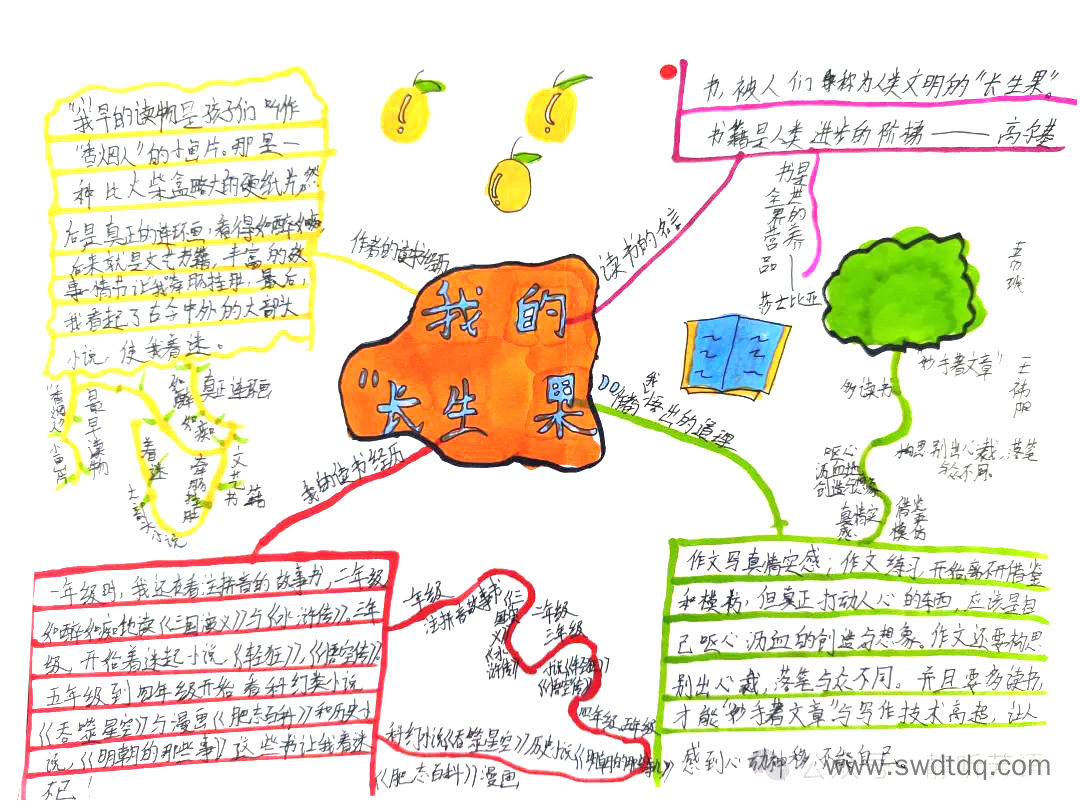 我的
"长生果"
作者的读书经历
"我早的读物是孩子们叫作
"香烟人"的小画片。那是一
种比火柴盒略大的硬纸片。然
后是真正的连环画,看得如醉如痴,
后来就是文艺书籍,丰富的故
事情节让我牵肠挂肚,最后,
我看起了古今中外的大部头
小说,使我着迷。
"香烟人"小画片
最早读物
真正连环画
如醉如痴
文艺书籍
牵肠挂肚
着迷
大部头小说
读书的名言
书,被人们称为人类文明的"长生果"。
书籍是人类进步的阶梯——高尔基
书是全世界的营养品—莎士比亚
我的读书经历
一年级时,我还在看注拼音的故事书,二年级
如醉如痴地读《三国演义》与《水浒传》。三年
级,开始着迷起小说《轻狂》,《悟空传》。
五年级到四年级开始看科幻类小说
《吞噬星空》与漫画《肥志百科》和历史小
说,《明朝的那些事》这些书让我着迷
不已!
一年级
注拼音故事书
《三国演义》《水浒传》
二年级
三年级
小说《轻狂》《悟空传》
四年级、五年级
科幻小说《吞噬星空》历史小说《明朝的那些事》
《肥志百科》漫画
悟出的道理
"妙手著文章"
多读书
构思别出心裁,落笔
与众不同。
呕心
沥血地
创造与想象
真情实感
借鉴
模仿
作文写真情实感;作文练习开始离不开借鉴
和模仿,但真正打动人心的东西,应该是自
己呕心沥血的创造与想象。作文还要构思
别出心裁,落笔与众不同。并且要多读书,
才能"妙手著文章"与写作技术高超,让人
感到心动神移不能自已
www.swdtdq.com